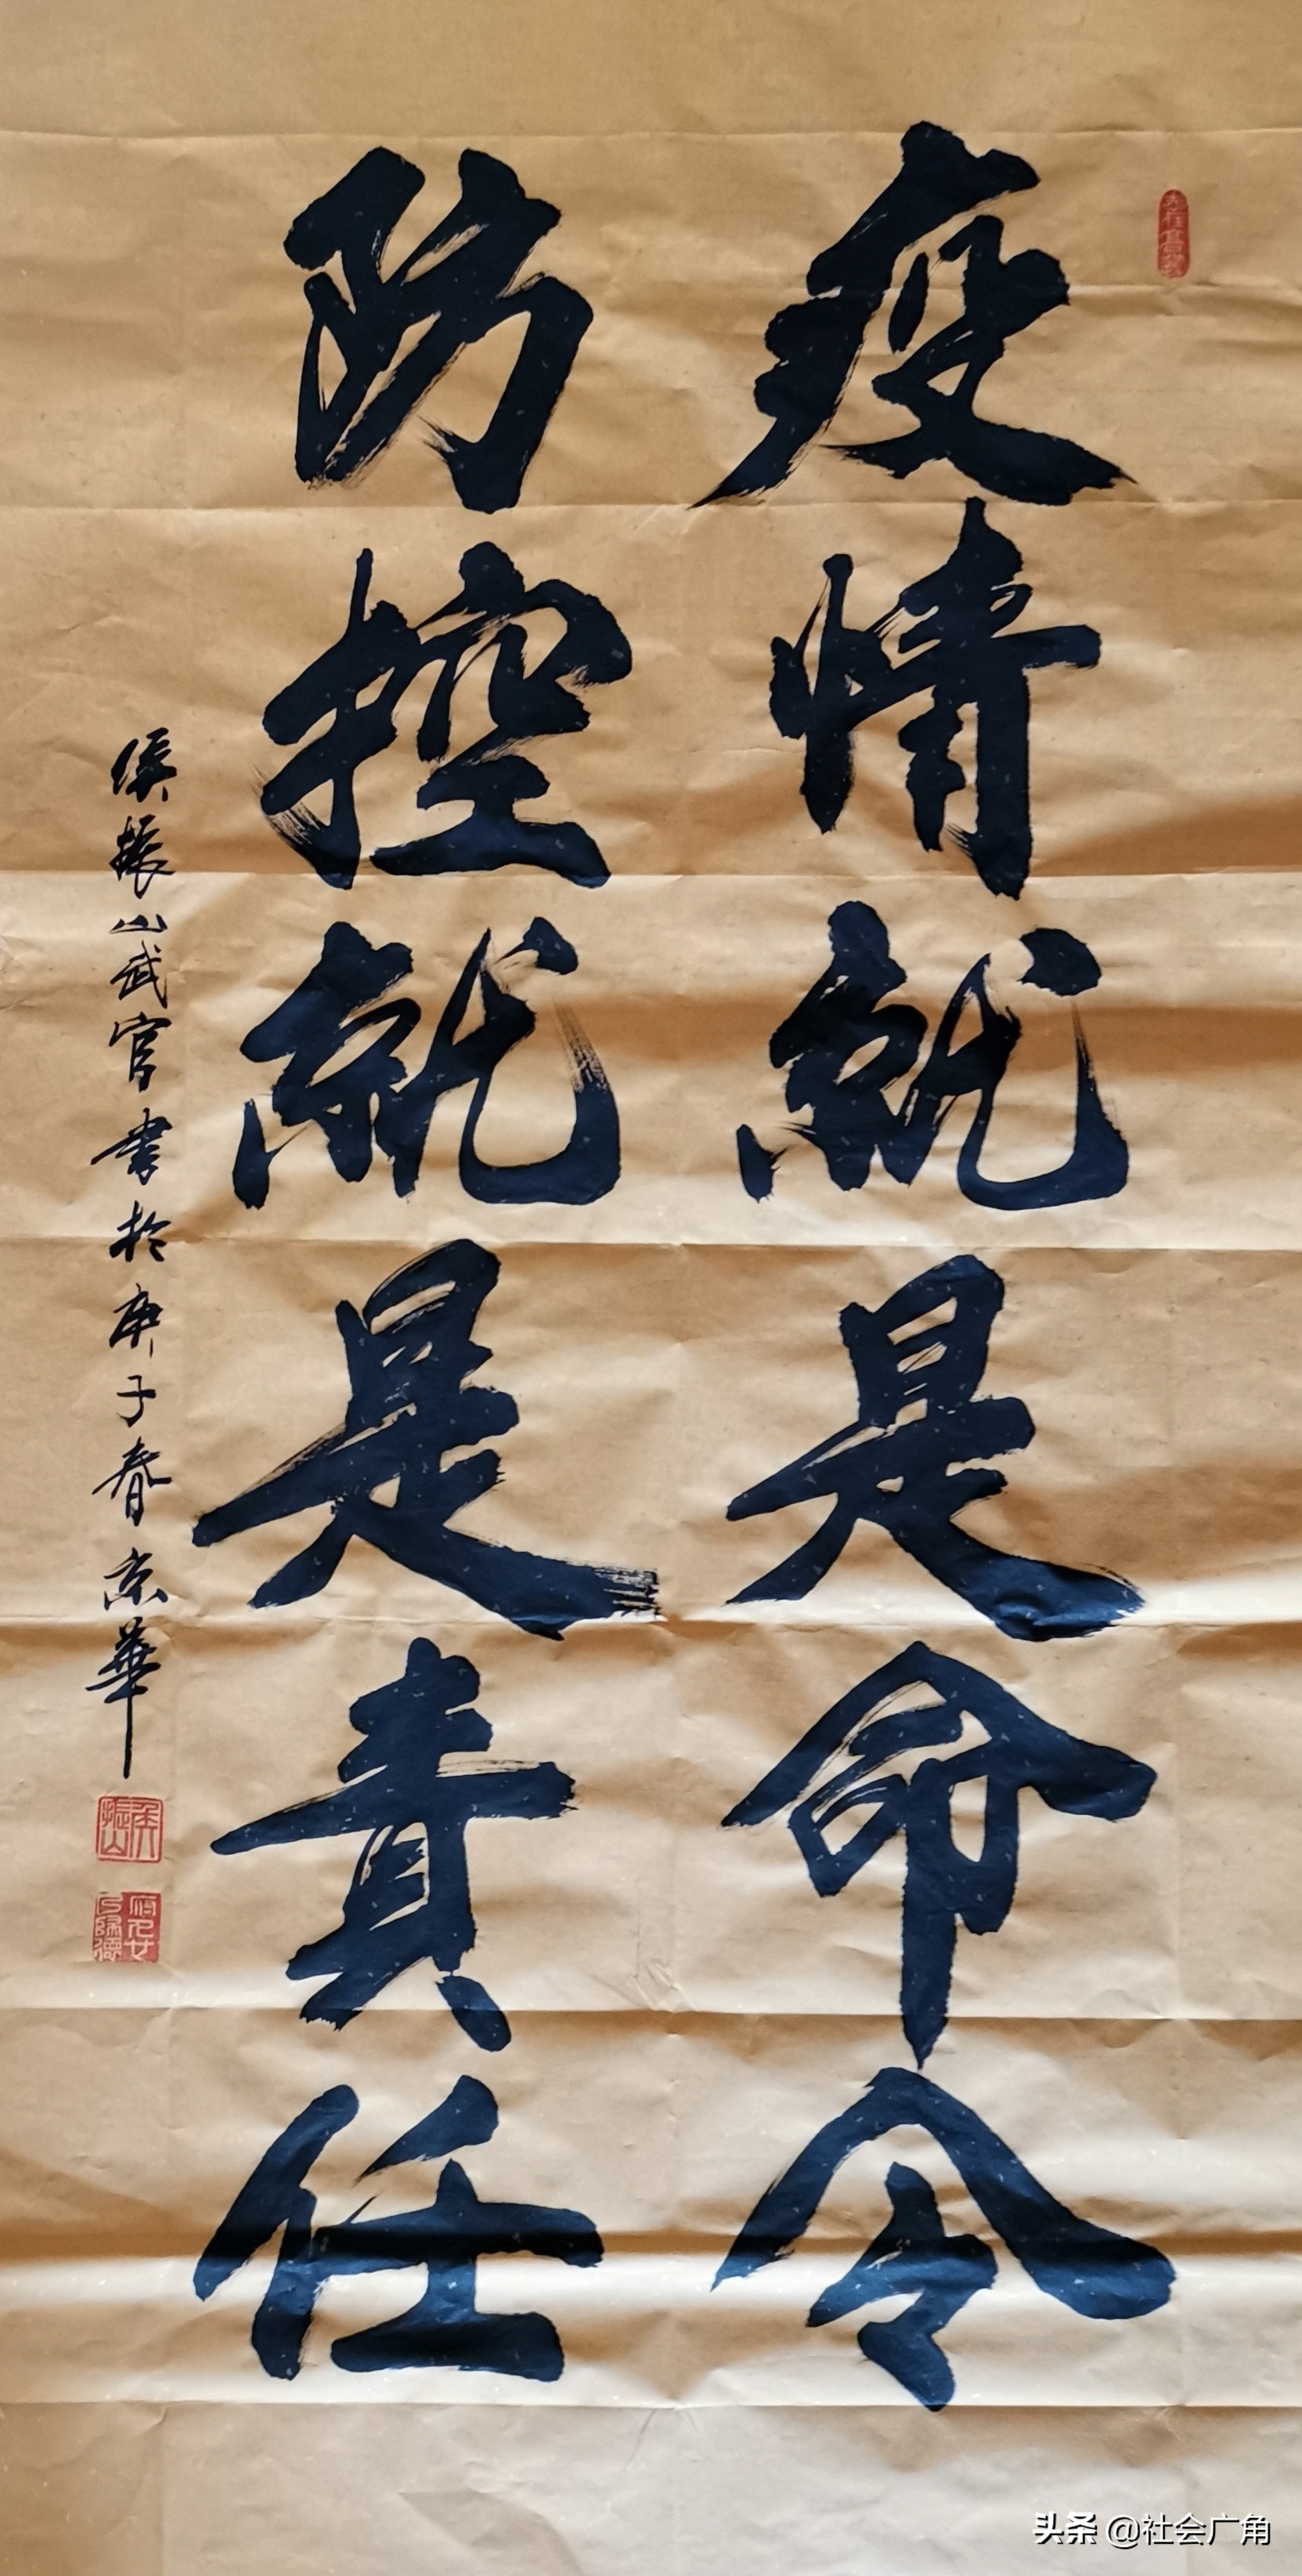 疫情就是命令
防控就是责任
侯振山武官书於庚子春京華
侯振山
头条 @社会广角